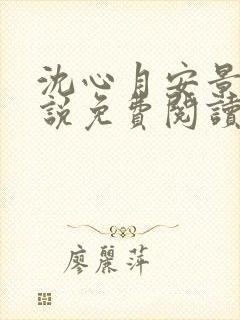 沈心自安景
說免費閱讀
廖麗萍